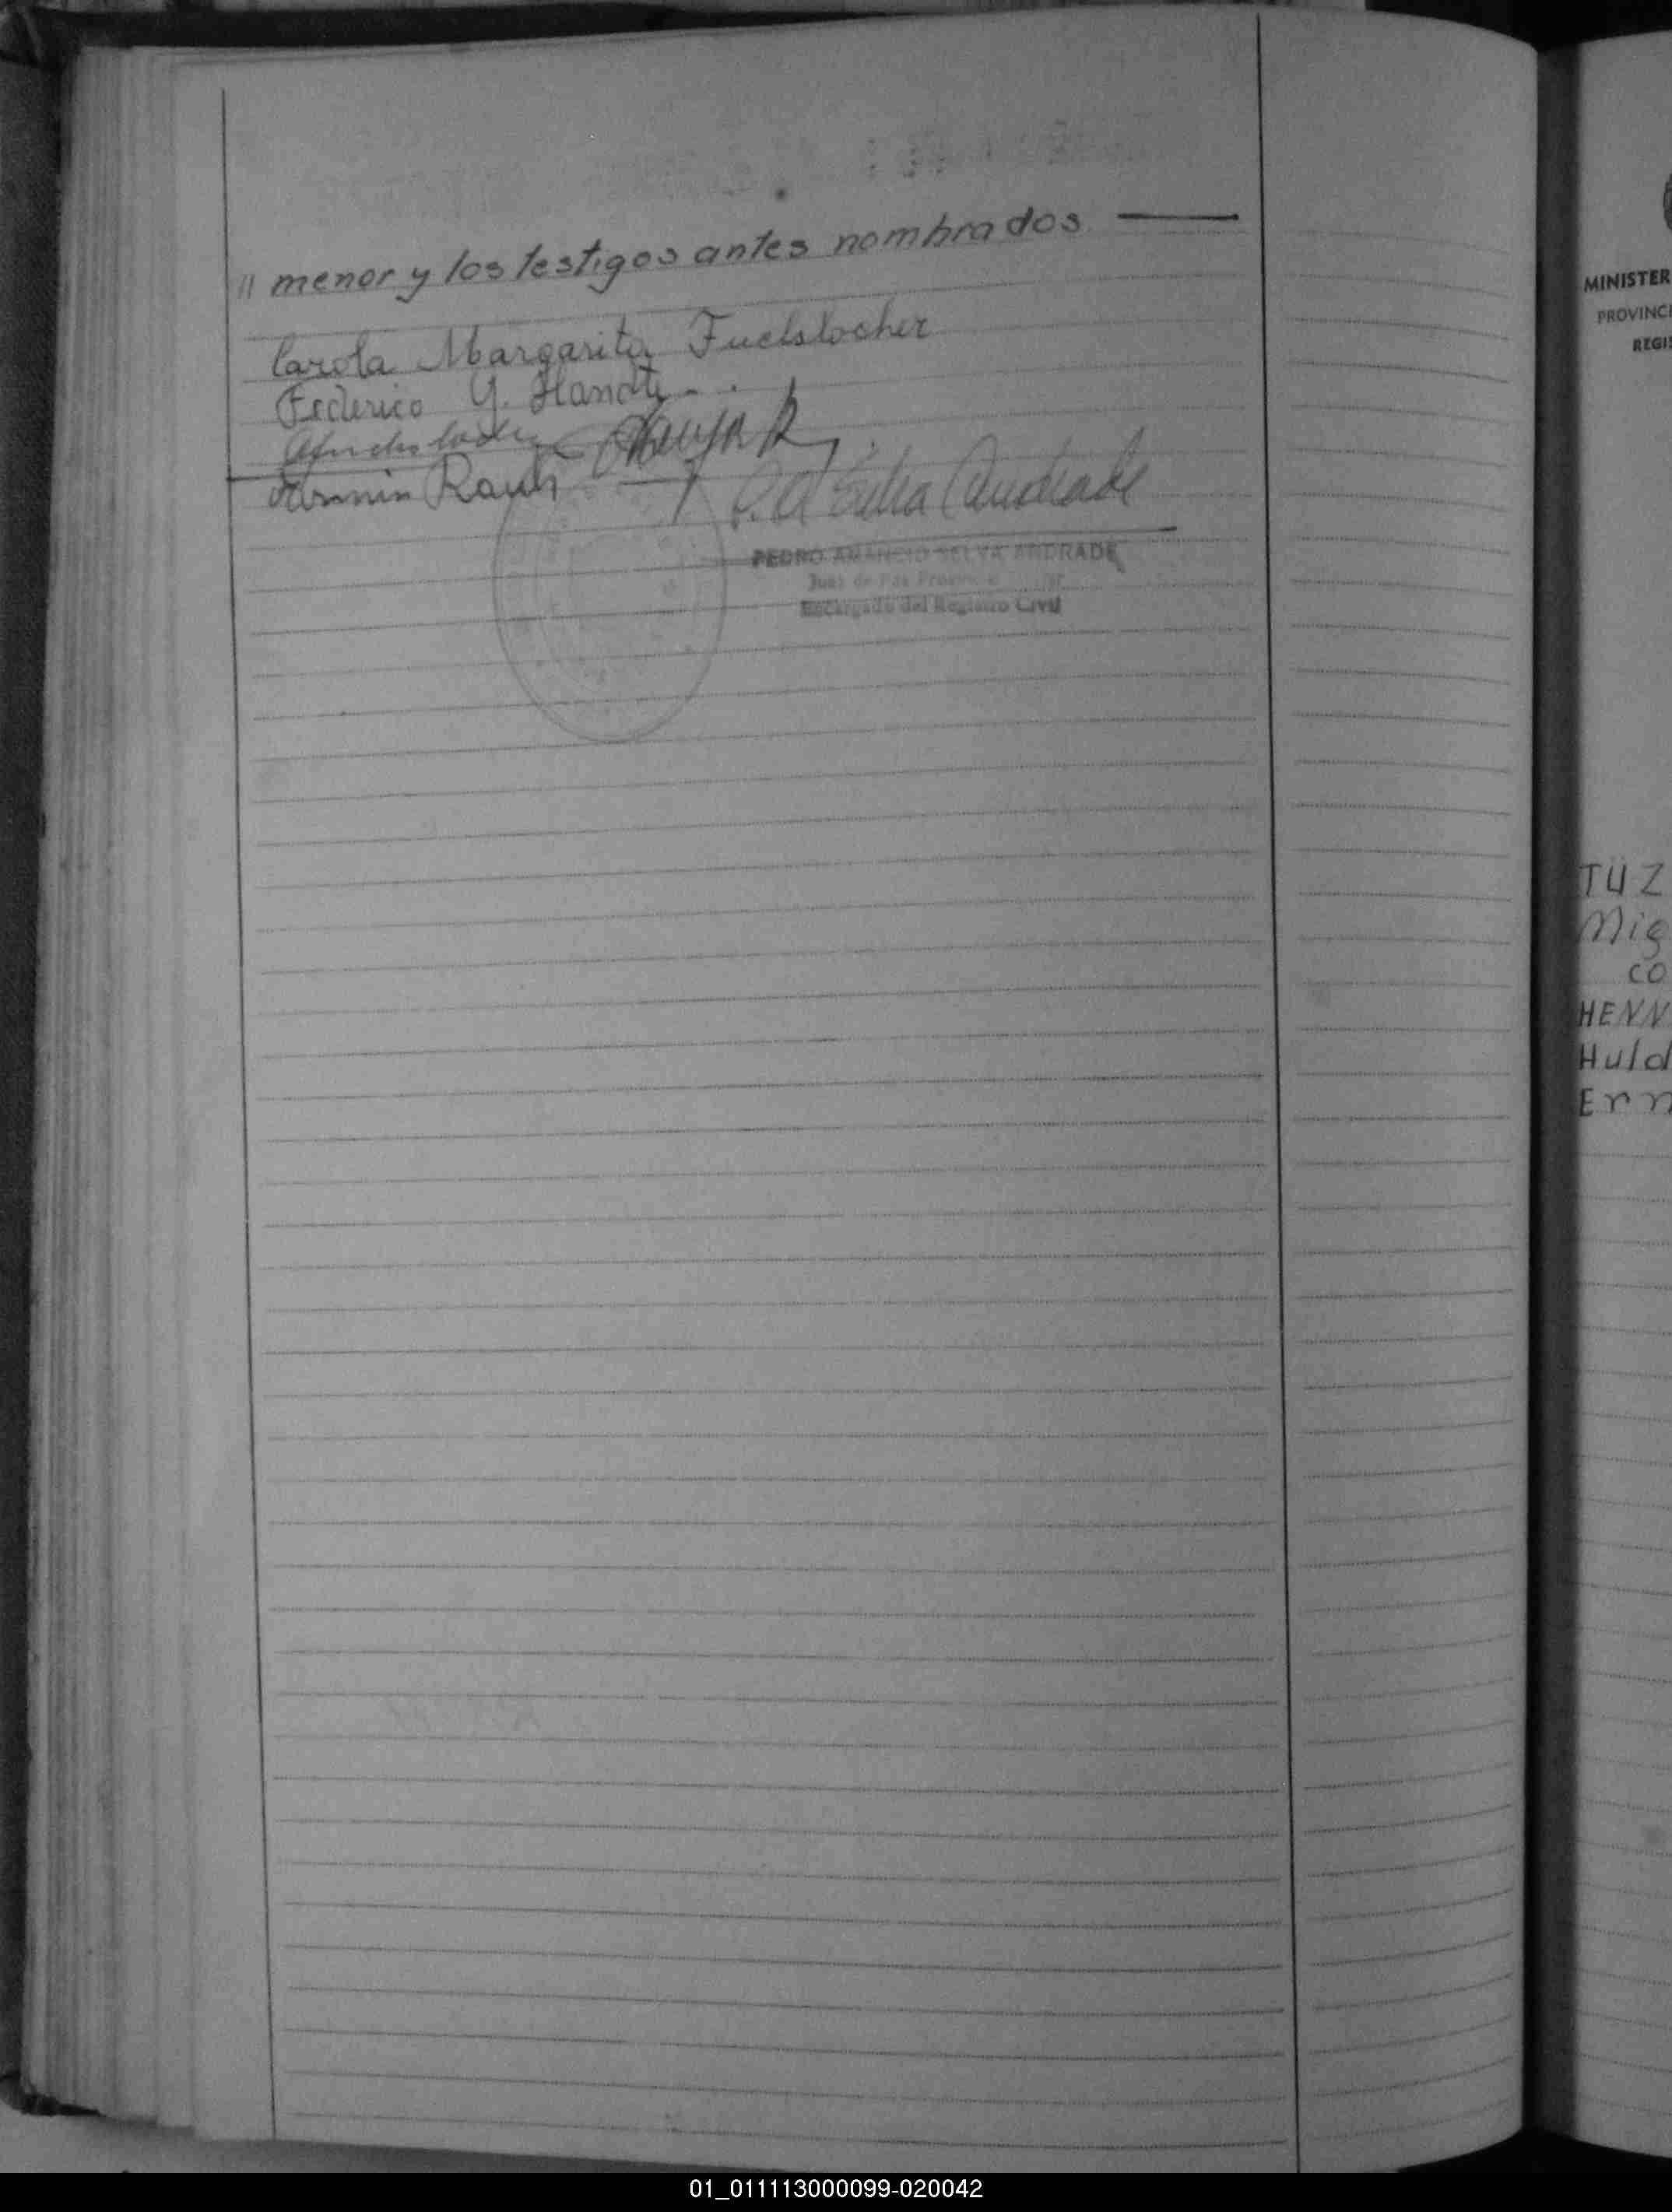 " menor y los testigos antes nombrados
Carola Margarita Fuelslocher
Federico G. Handte
Armin Rauh
P. A Selva Andrade
PEDRO AMANCIO SELVA ANDRADE
Juez de Paz
Encargado del Registro Civil
MINISTER
PROVINCI
REGIS
TÜZ
Mig
co
HENN
Huld
Ern
01_011113000099-020042